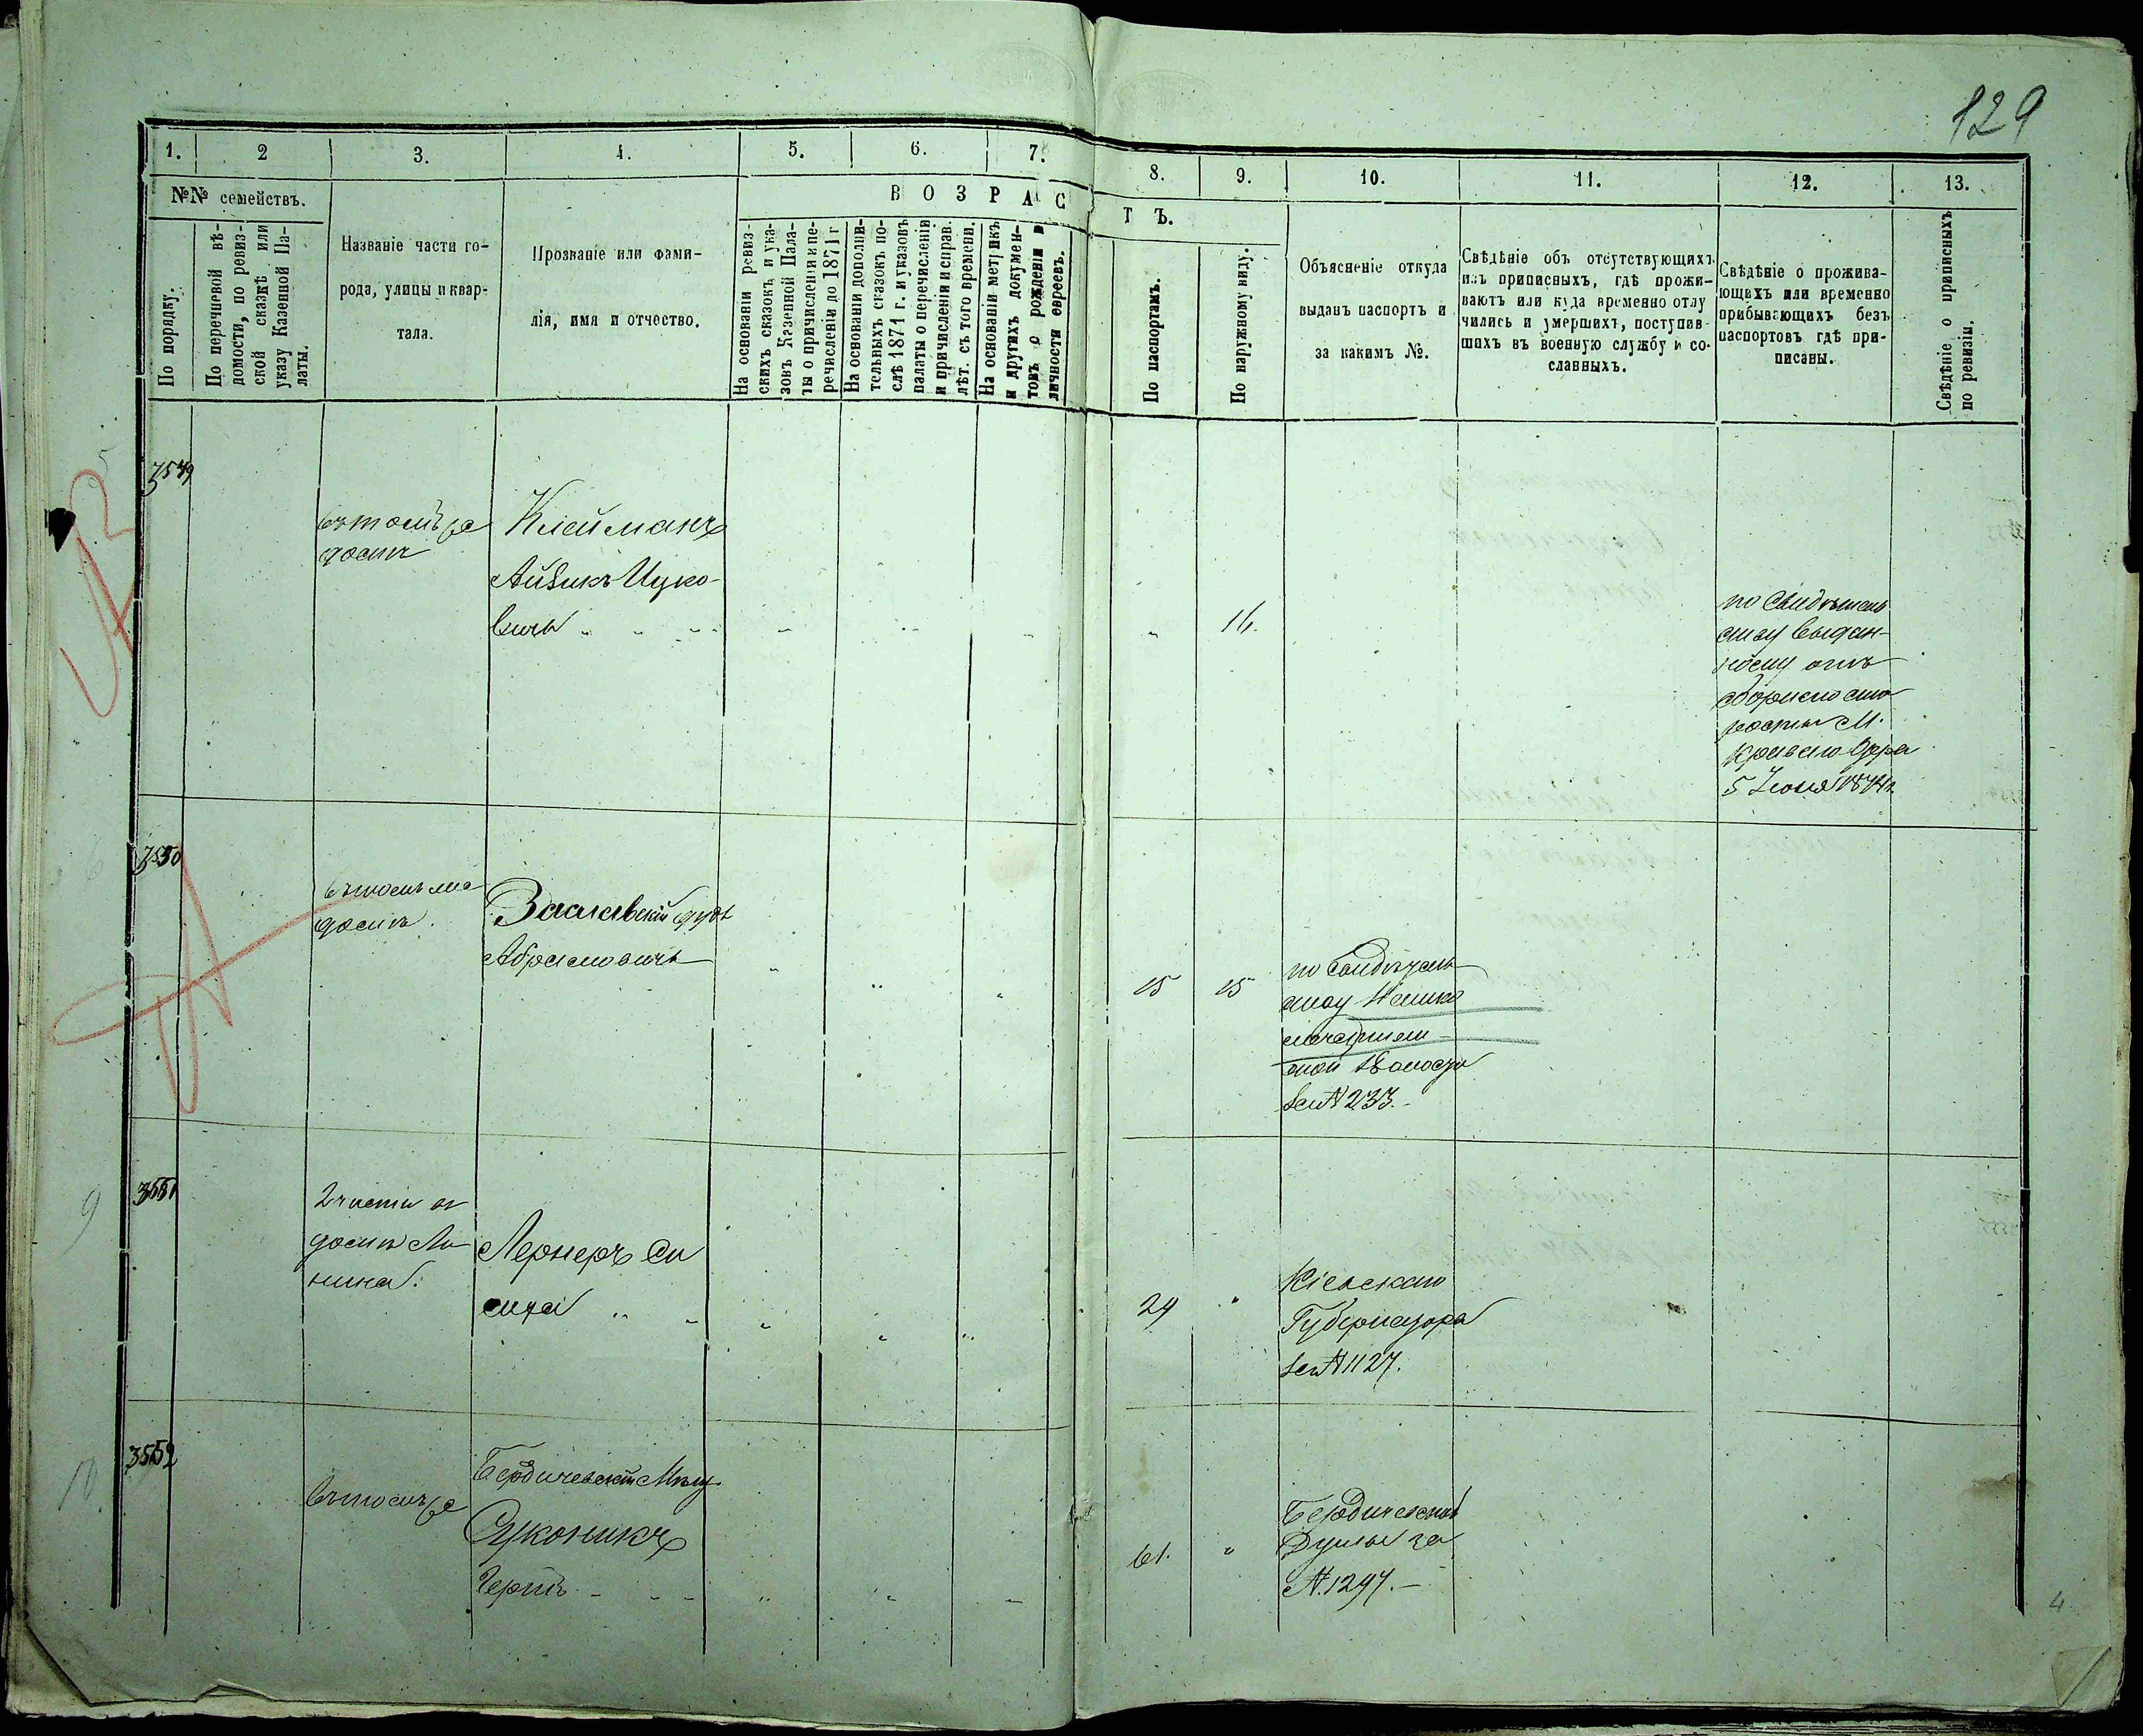 129
1. 2 3. 4. 5. 6. 7. 8. 9. 10. 11. 12. 13.
№№ семействъ.
По порядку.
По перечневой вѣ-
домости, по ревиз-
ской сказкѣ или
указу Казенной Па-
латы.
Названіе части го-
рода, улицы и квар-
тала.
Прозваніе или фами-
лія, имя и отчество.
ВОЗРАСТЪ.
На основаніи ревиз-
скихъ сказокъ и ука-
зовъ Казенной Пала-
ты о причисленіи и пе-
речисленіи до 1871 г
На основаніи дополни-
тельныхъ сказокъ по-
слѣ 1871 г. и указовъ
палаты о перечисленіи
и причисленіи и справ.
лѣт. съ того времени.
На основаніи метрикъ
и другихъ докумен-
товъ о рожденіи и
личности евреевъ.
По паспортамъ.
По наружному виду.
Объясненіе откуда
выданъ паспортъ и
за какимъ №.
Свѣдѣніе объ отсутствующихъ
изъ приписныхъ, гдѣ прожи-
ваютъ или куда временно отлу
чились и умершихъ, поступив-
шихъ въ военную службу и со-
сланныхъ.
Свѣдѣніе о прожива-
ющихъ или временно
прибывающихъ безъ
паспортовъ гдѣ при-
писаны.
Свѣдѣніе о приписныхъ
по ревизіи.
3549
въ томъ же
домѣ
Клейманъ
Айзикъ Ицко-
вичъ
16.
по Свидѣтель
ству выдан-
ному отъ
сборнаго ста
росты М.
Криваго Озера
5 Іюня 1874 г.
3550
въ томъ же
домѣ.
Заславскій
Абрамовичъ
15 15
по Свидѣтель
ству
ной Волости
за № 233.
9
3551
2 части въ
домѣ
Лернеръ Си
сиза
24
Кіевскаго
Губернатора
за № 1127.
10
3552
въ томъ же
Бердичевскій Мѣщ.
Суконикъ
Гершъ
61.
Бердичевской
Думы за
№. 1297.
4